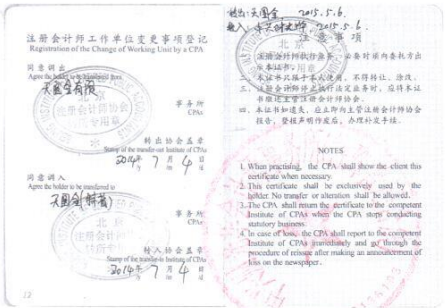 注册会计师工作单位变更事项登记
Registration of the Change of Working Unit by a CPA
同意调出
Agree the holder to be transferred from
天圆全有限
事务所
CPAs
转出协会盖章
Stamp of the transfer-out Institute of CPAs
2014年 7月 4日
同意调入
Agree the holder to be transferred to
天圆全(特普)
事务所
CPAs
转入协会盖章
Stamp of the transfer-in Institute of CPAs
2014年 7月 4日
12
转出:天圆全 2015.5.6.
转入: 2015.5.6.
注意事项
一、注册会计师执行业务,必要时须向委托方出示本证书。
二、本证书只限于本人使用,不得转让、涂改。
三、注册会计师停止执行法定业务时,应将本证书缴还主管注册会计师协会。
四、本证书如遗失,应立即向主管注册会计师协会报告,登报声明作废后,办理补发手续。
NOTES
1. When practising, the CPA shall show the client this
certificate when necessary.
2. This certificate shall be exclusively used by the
holder. No transfer or alteration shall be allowed.
3. The CPA shall return the certificate to the competent
Institute of CPAs when the CPA stops conducting
statutory business.
4. In case of loss, the CPA shall report to the competent
Institute of CPAs immediately and go through the
procedure of reissue after making an announcement of
loss on the newspaper.